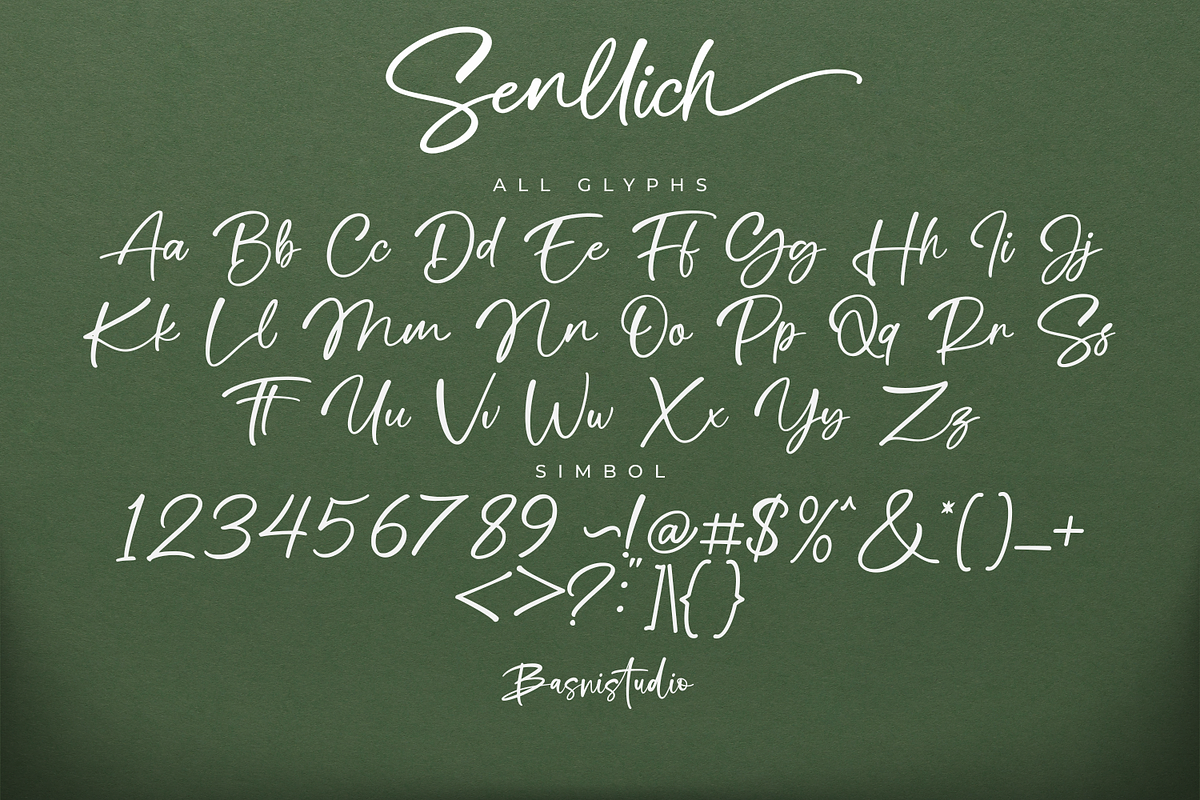 Senllich
ALL GLYPHS
Aa Bb Cc Dd Ee Ff Gg Hh Ii Jj
Kk Ll Mm Nn Oo Pp Qq Rr Ss
Tt Uu Vv Ww Xx Yy Zz
SIMBOL
123456789 ~!@#$%^&*()_+
<>?:"]|\{}
Basnistudio